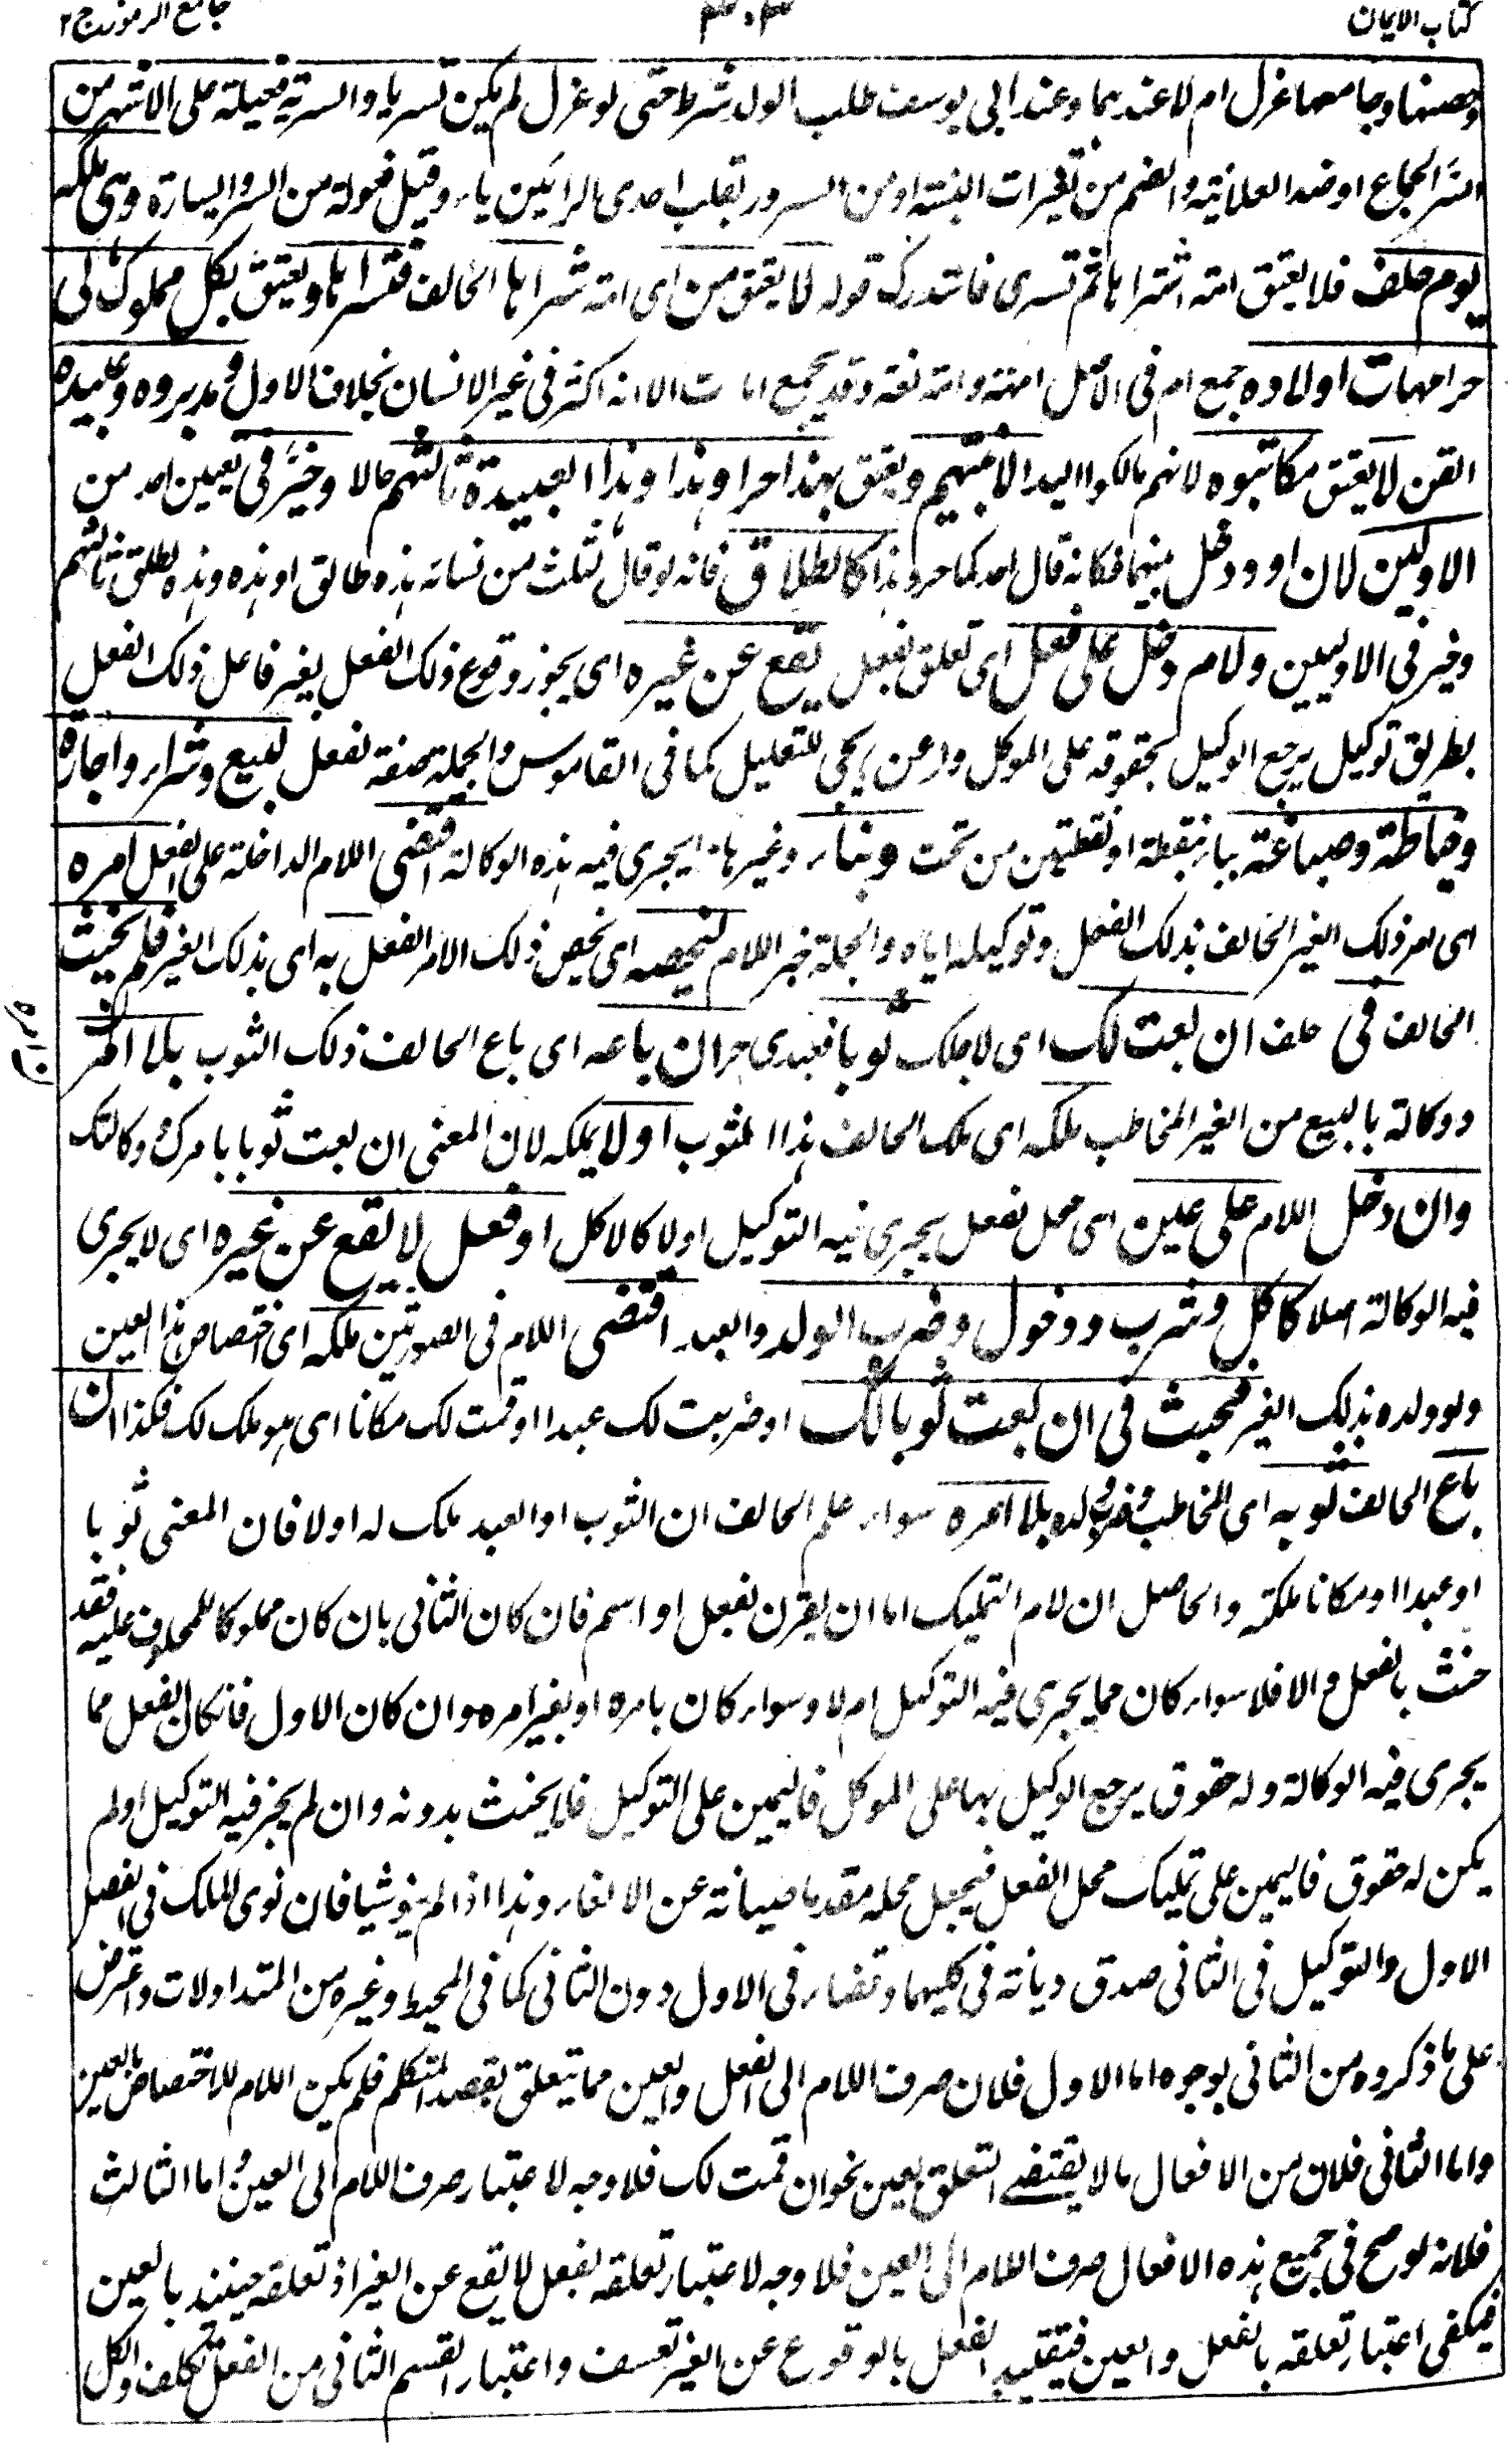 كتاب الايمان ٣٠٣ جامع الرموز ج ٢
وحصنها وجامعها عزل ام لا عندهما وعند ابي يوسف طلب الولد شرط حتى لو عزل لم يكن تسريا والسرية فعيلة على الاشهر من
السر الجماع او ضد العلانية والضم من تغيرات النسبة او من السرور بقلب احدى الرائين ياء وقيل فعولة من السر والسيارة وهى ملكه
يوم حلف فلا يعتق امته اشتراها ثم تسرى فاستدرك قوله لا يعتق من اى امة شراها الحالف فتسراها ويعتق بكل مملوك لى
حر امهات اولاده جمع ام فى الاصل امهة وامة لغة وقد يجمع امات الا انه اكثر فى غير الانسان بخلاف الاول ومدبروه وعبيده
القن لا يعتق مكاتبوه لانهم مالكوا اليد الا بنيتهم ويعتق بهذا حر او هذا وهذا العبيدة ثالثهم حالا وخير فى تعيين احد من
الاولين لان او دخل بينهما فكانه قال احدكما حر وهذا كالطلاق فانه لو قال لثلث من نسائه هذه طالق او هذه وهذه تطلق ثالثهم
وخير فى الاوليين ولام دخل على فعل اى تعلق بفعل يقع عن غيره اى يجوز وقوع ذلك الفعل بغير فاعل ذلك الفعل
بطريق توكيل يرجع الوكيل بحقوقه على الموكل واو عن يجئ للتعليل كما فى القاموس والجملة صفة لفعل كبيع وشراء واجارة
وخياطة وصباغة بباء بنقطة او نقطتين من تحت وبناء وغيرها مما يجرى فيه هذه الوكالة اقتضى اللام الداخلة على الفعل امره
اى امر ذلك الغير الحالف بذلك الفعل وتوكيله اياه والجملة خبر اللام ليخصه اى يخص ذلك الامر الفعل به اى بذلك الغير فلم يحنث
الحالف فى حلف ان بعت لك اى لاجلك ثوبا فعبدى حر ان باعه اى باع الحالف ذلك الثوب بلا امر
ووكالة بالبيع من الغير المخاطب ملكه اى ملك الحالف هذا الثوب او لا يملكه لان المعنى ان بعت ثوبا بامرك ووكالتك
وان دخل اللام على عين اى محل لفعل يجرى فيه التوكيل اولا كالاكل او فعل لا يقع عن غيره اى لا يجرى
فيه الوكالة اصلا كاكل وشرب ودخول وضرب الولد والعبد اقتضى اللام فى الصورتين ملكه اى اختصاص هذا العين
ولو ولده بذلك الغير فحنث فى ان بعت ثوبا لك او ضربت لك عبدا او قمت لك مكانا اى هو ملك لك فكذا ان
باع الحالف ثوبه اى المخاطب وضرب ولده بلا امره سواء علم الحالف ان الثوب او العبد ملك له او لا فان المعنى ثوبا
او عبدا او مكانا ملكته والحاصل ان لام التمليك اما ان يقرن بفعل او اسم فان كان الثانى بان كان مملوكا للمحلوف عليه فقد
حنث بالفعل والا فلا سواء كان مما يجرى فيه التوكيل ام لا وسواء كان بامره او بغير امره وان كان الاول فان كان الفعل مما
يجرى فيه الوكالة وله حقوق يرجع الوكيل بها على الموكل فاليمين على التوكيل فلا يحنث بدونه وان لم يجز فيه التوكيل او لم
يكن له حقوق فاليمين على تمليك محل الفعل فيجعل محله مقدما صيانة عن الالغاء وهذا اذا لم ينو شيا فان نوى الملك فى الفصل
الاول والتوكيل فى الثانى صدق ديانة فى كليهما وقضاء فى الاول دون الثانى كما فى المحيط وغيره من المتداولات واعترض
على ما ذكروه من الثانى بوجوه اما الاول فلان صرف اللام الى الفعل والعين مما يتعلق بقصد المتكلم فلم يكن اللام للاختصاص بالعين
واما الثانى فلان من الافعال ما لا يقتضى التعلق بعين نحو ان قمت لك فلا وجه لاعتبار صرف اللام الى العين واما الثالث
فلانه لو صح فى جميع هذه الافعال صرف اللام الى العين فلا وجه لاعتبار تعلقه بفعل لا يقع عن الغير اذ تعلقه حينئذ بالعين
فيكفى اعتبار تعلقه بالفعل والعين فتقييد الفعل بالوقوع عن الغير تعسف واعتبار القسم الثانى من الفعل تكلف والكل